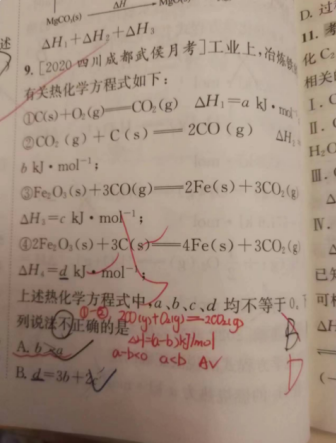 MgCO₃(s)
ΔH
ΔH₁+ΔH₂+ΔH₃
9. [2020四川成都武侯月考]工业上,冶炼
有关热化学方程式如下:
①C(s)+O₂(g)══CO₂(g) ΔH₁=a kJ·mol
②CO₂(g)+C(s)══2CO(g) ΔH₂
b kJ·mol⁻¹;
③Fe₂O₃(s)+3CO(g)══2Fe(s)+3CO₂(g)
ΔH₃=c kJ·mol⁻¹;
④2Fe₂O₃(s)+3C(s)══4Fe(s)+3CO₂(g)
ΔH₄=d kJ·mol⁻¹;
上述热化学方程式中,a、b、c、d均不等于0,
列说法不正确的是
①-② 2CO(g)+O₂(g)=2CO₂(g)
ΔH=(a-b)kJ/mol
a-b<0 a<b A√
A. b>a
B. d=3b+2
B
D
D. 过
11.
化C
相关
Ⅰ.
Ⅱ.
H₂O
Ⅲ.
Ⅳ.
已
可
ΔH